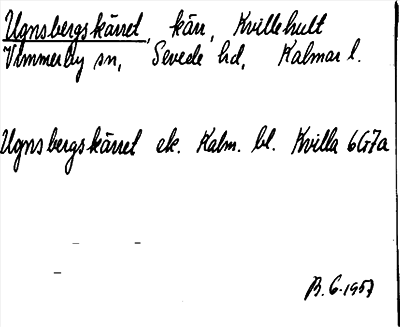 Ugnsbergskärret, kärr, Kvillehult
Vimmerby sn, Sevede hd, Kalmar l.
Ugnsbergskärret ek. Kalm. bl. Kvilla 6G7a
B. G. 1957